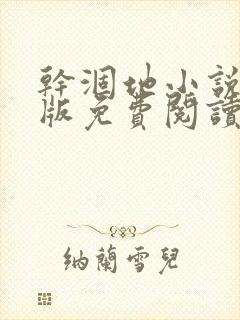 幹涸地小說
版免費閱讀
纳蘭雪兒